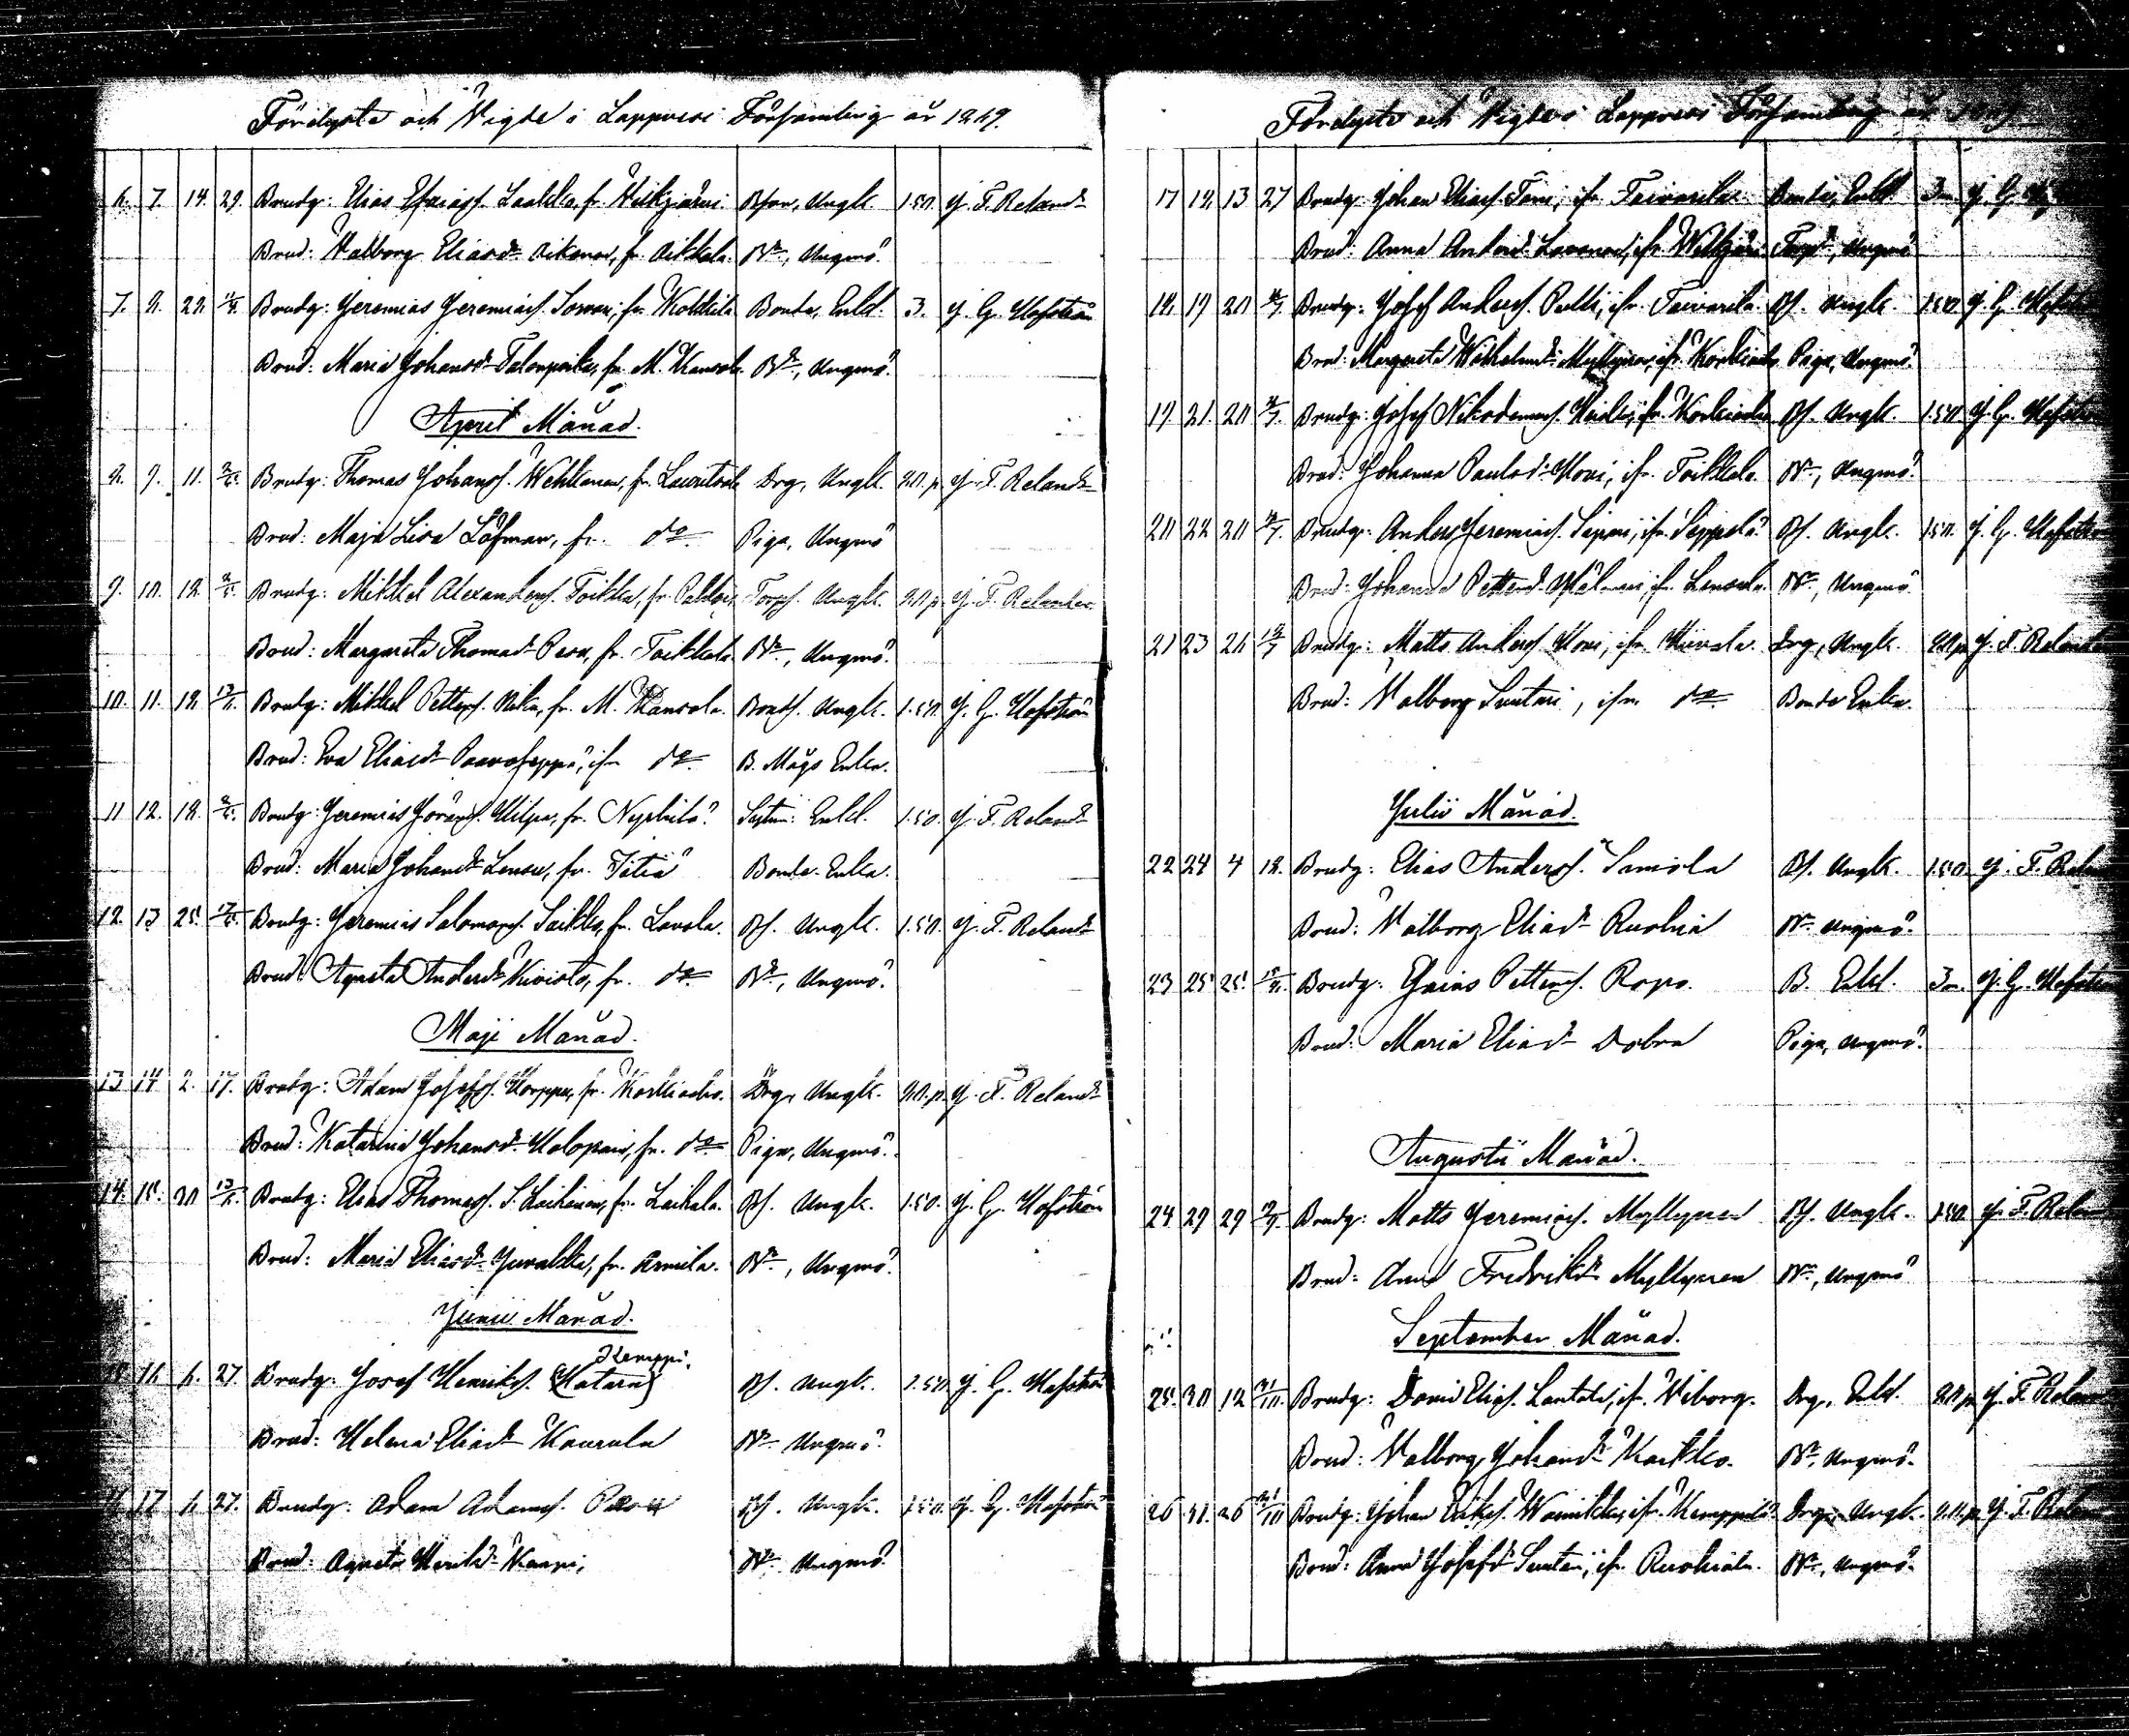 Förelyste och Vigde i Lappvesi Församling år 1869.
6. 7. 14. 29. Brudg: Elias Esaiass. Laakko, fr. Hikjärvi. Bson, Ungk. 1.50. J. F. Reland
Brud: Walborg Eliasdr Aikonen, fr. Aikkala. Dr, Ungmö.
7. 8. 28. Brudg: Jeremias Jeremiass. Sorvari, fr. Kokkila Bonde, Enkl. 3. J. G. Hofström
Brud: Maria Johansdr Talonpoika, fr. M. Kansola. Dr, Ungmö.
April Månad.
8. 9. 11. Brudg: Thomas Johanss. Wehkanen, fr. Lauritsala Drg, Ungk. 80 p. J. F. Reland
Brud: Maja Lisa Löfman, fr. do. Piga, Ungmö
9. 10. 18. Brudg: Mikkel Alexanders. Toikka, fr. Torps. Ungk. 80 p. J. F. Relander
Brud: Margareta Thomasdr Pesu, fr. Toikkala. Dr, Ungmö.
10. 11. 18. Brudg: Mikkel Petters. fr. M. Kansola. Bonds. Ungk. 1.50. J. G. Hofström
Brud: Eva Eliasdr Paavoseppä, ifr do. B. Mågs Enka.
11 12. 18. Brudg: Jeremias Jöranss. Hilpa, fr. Enkl. 1.50. J. F. Reland
Brud: Maria Johansdr Lensu, fr. Bonde Enka.
12. 13 25. Brudg: Jeremias Salomons. Saikko, fr. Lavola. Bs. Ungk. 1.50. J. F. Reland
Brud: Agneta Andersdr Kivisto, fr. do. Dr, Ungmö.
Maji Månad.
13 14 2. 17. Brudg: Adam Josefs. Korppu, fr. Korkiaoho. Drg, Ungk. 80. p. J. F. Reland
Brud: Katarina Johansdr Holopain, fr. do Piga, Ungmö.
14. 15. 30 Brudg: Elias Thomass. S. Laihianen, fr. Laihala. Bs. Ungk. 1.50. J. G. Hofström
Brud: Maria Eliasdr Juvakka, fr. Armila. Dr, Ungmö.
Junii Månad.
Kemppi.
16 6. 27. Brudg: Josef Henrikss. (Hatara) Bs. Ungk. 1.50 J. G. Hofström
Brud: Helena Eliasdr Kaurula Dr Ungmö.
17 6. 27. Brudg: Adam Adams. Bs. Ungk. 1.50. J. G. Hofström
Brud: Agneta Henrikdr Dr Ungmö.
Förelyste och Vigde i Lappvesi Församling år 1869
17 18 13 27 Brudg: Johan Eliass. Toni, ifr. Taivarila. Bonde, Enkl. 3 J. G.
Brud: Anna Andersdr Lavonen, ifr. Torpdr, Ungmö
18. 19 20 Brudg: Josef Anderss. Pulli, ifr. Taivarila Bs. Ungk. 1.50. J. G. Hofström
Brud: Margareta Wilhelmsdr Myllynen, ifr. Korkiaoho Piga, Ungmö.
19. 21. 20 Brudg: Josef Nikodemuss. ifr. Korkiaoho Bs. Ungk. 1.50 J. G. Hofström
Brud: Johanna Paulsdr Hovi, ifr. Toikkala. Dr, Ungmö.
20 22 20 Brudg: Anders Jeremiass. Sipari, ifr. Seppälä. Bs. Ungk. 1.50. J. G. Hofström
Brud: Johanna Pettersdr ifr. Lensula. Dr, Ungmö.
21 23 26 Brudg: Matts Anderss. Hovi, ifr. Hurvala. Drg, Ungk. 80 p. J. F. Reland
Brud: Walborg Suutari, ifr. do. Bonde Enka.
Julii Månad.
22 24 4 18. Brudg: Elias Anderss. Simola Bs. Ungk. 1.50. J. F. Reland
Brud: Walborg Eliasdr Ruohia Dr Ungmö.
23 25 25. Brudg: Esaias Petters. Ropo. B. Enkl. 3 J. G. Hofström
Brud: Maria Eliasdr Dobra Piga, Ungmö.
Augusti Månad.
24 29 29 Brudg: Matts Jeremiass. Myllynen Bs. Ungk. 1.50. J. F. Reland
Brud: Anna Fredriksdr Myllynen Dr, Ungmö
September Månad.
25. 30 12 Brudg: David Eliass. Lantolo, ifr. Wiborg. Drg. Enkl. 80 p J. F. Reland
Brud: Walborg Johansdr Karkko. Dr, Ungmö.
26 31. 26 Brudg: Johan Eriks. Wainikka, ifr. Kemppilä. Drg. Ungk. 80. p. J. F. Reland
Brud: Anna Josefsdr Suutari, ifr. Ruohiala. Dr, Ungmö.